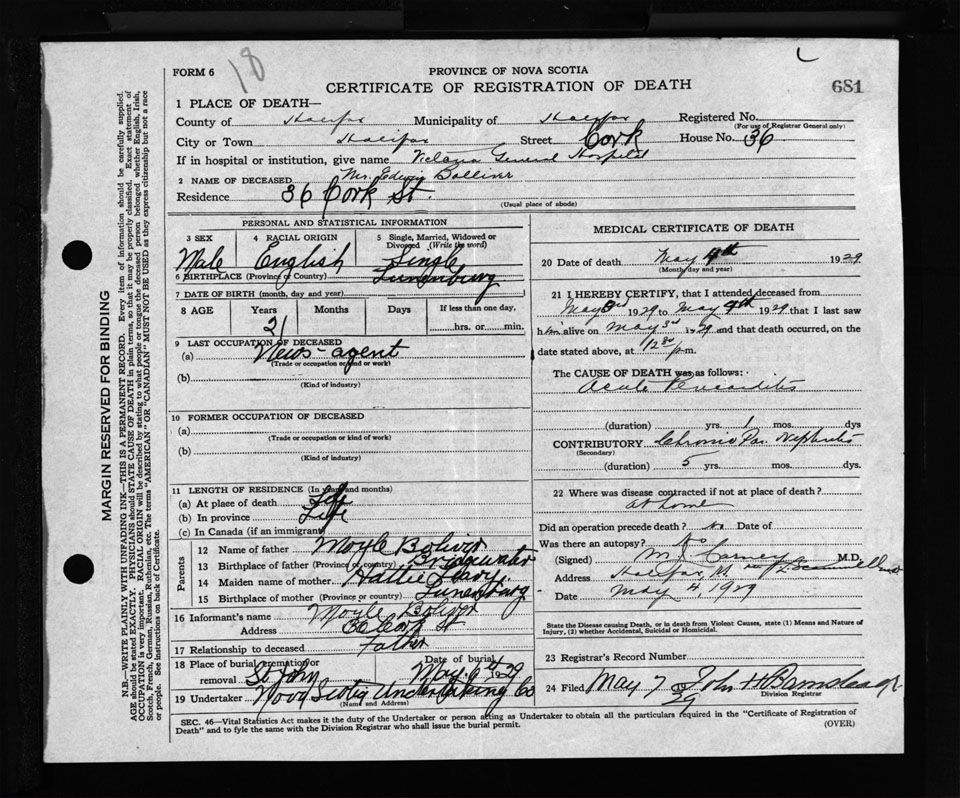 18
FORM 6
PROVINCE OF NOVA SCOTIA
681
CERTIFICATE OF REGISTRATION OF DEATH
1 PLACE OF DEATH—
County of Halifax Municipality of Halifax Registered No.
(For use of Registrar General only)
City or Town Halifax Street Cork House No. 36
If in hospital or institution, give name Victoria General Hospital
2 NAME OF DECEASED Mr. Edwin Bolliver
Residence 36 Cork St.
(Usual place of abode)
PERSONAL AND STATISTICAL INFORMATION
3 SEX 4 RACIAL ORIGIN 5 Single, Married, Widowed or Divorced (Write the word)
Male English Single
6 BIRTHPLACE (Province or Country) Lunenburg
7 DATE OF BIRTH (month, day and year)
8 AGE Years Months Days If less than one day,
21 hrs. or min.
9 LAST OCCUPATION OF DECEASED
(a) News-agent
(Trade or occupation or kind of work)
(b)
(Kind of industry)
10 FORMER OCCUPATION OF DECEASED
(a)
(Trade or occupation or kind of work)
(b)
(Kind of industry)
11 LENGTH OF RESIDENCE (In years and months)
(a) At place of death Life
(b) In province Life
(c) In Canada (if an immigrant)
Parents
12 Name of father Moyle Boliver
13 Birthplace of father (Province or country) Bridgewater
14 Maiden name of mother Hattie
15 Birthplace of mother (Province or country) Lunenburg
16 Informant's name Moyle Boliver
Address 36 Cork St
17 Relationship to deceased Father
18 Place of burial, cremation or removal St John Date of burial May 6th 1929
19 Undertaker Nova Scotia Undertaking Co
(Name and Address)
MEDICAL CERTIFICATE OF DEATH
20 Date of death May 4th 1929
(Month, day and year)
21 I HEREBY CERTIFY, that I attended deceased from
May 3rd 1929 to May 4th 1929 that I last saw
him alive on May 3rd 1929 and that death occurred, on
date stated above, at 12 30 p.m.
The CAUSE OF DEATH was as follows:
Acute Pericarditis
(duration) yrs. 1 mos. dys
CONTRIBUTORY Chronic Par. Nephritis
(Secondary)
(duration) 5 yrs. mos. dys.
22 Where was disease contracted if not at place of death?
at home
Did an operation precede death? No Date of
Was there an autopsy? No
(Signed) M J Carney M.D.
Address Halifax, N.S.
Date May 4, 1929
State the Disease causing Death, or in death from Violent Causes, state (1) Means and Nature of Injury, (2) whether Accidental, Suicidal or Homicidal.
23 Registrar's Record Number
24 Filed May 7 29 John H Barnstead
Division Registrar
SEC. 46—Vital Statistics Act makes it the duty of the Undertaker or person acting as Undertaker to obtain all the particulars required in the "Certificate of Registration of
Death" and to fyle the same with the Division Registrar who shall issue the burial permit.
(OVER)
MARGIN RESERVED FOR BINDING
N.B.—WRITE PLAINLY WITH UNFADING INK—THIS IS A PERMANENT RECORD. Every item of information should be carefully supplied.
AGE should be stated EXACTLY. PHYSICIANS should STATE CAUSE OF DEATH in plain terms, so that it may be properly classified. Exact statement of
OCCUPATION is very important. RACIAL ORIGIN will be described by stating to what people or tongue the deceased person belonged whether English, Irish,
Scotch, French, German, Russian, Ruthenian, etc. The terms "AMERICAN" OR "CANADIAN" MUST NOT BE USED as they express citizenship but not a race
or people. See instructions on back of Certificate.